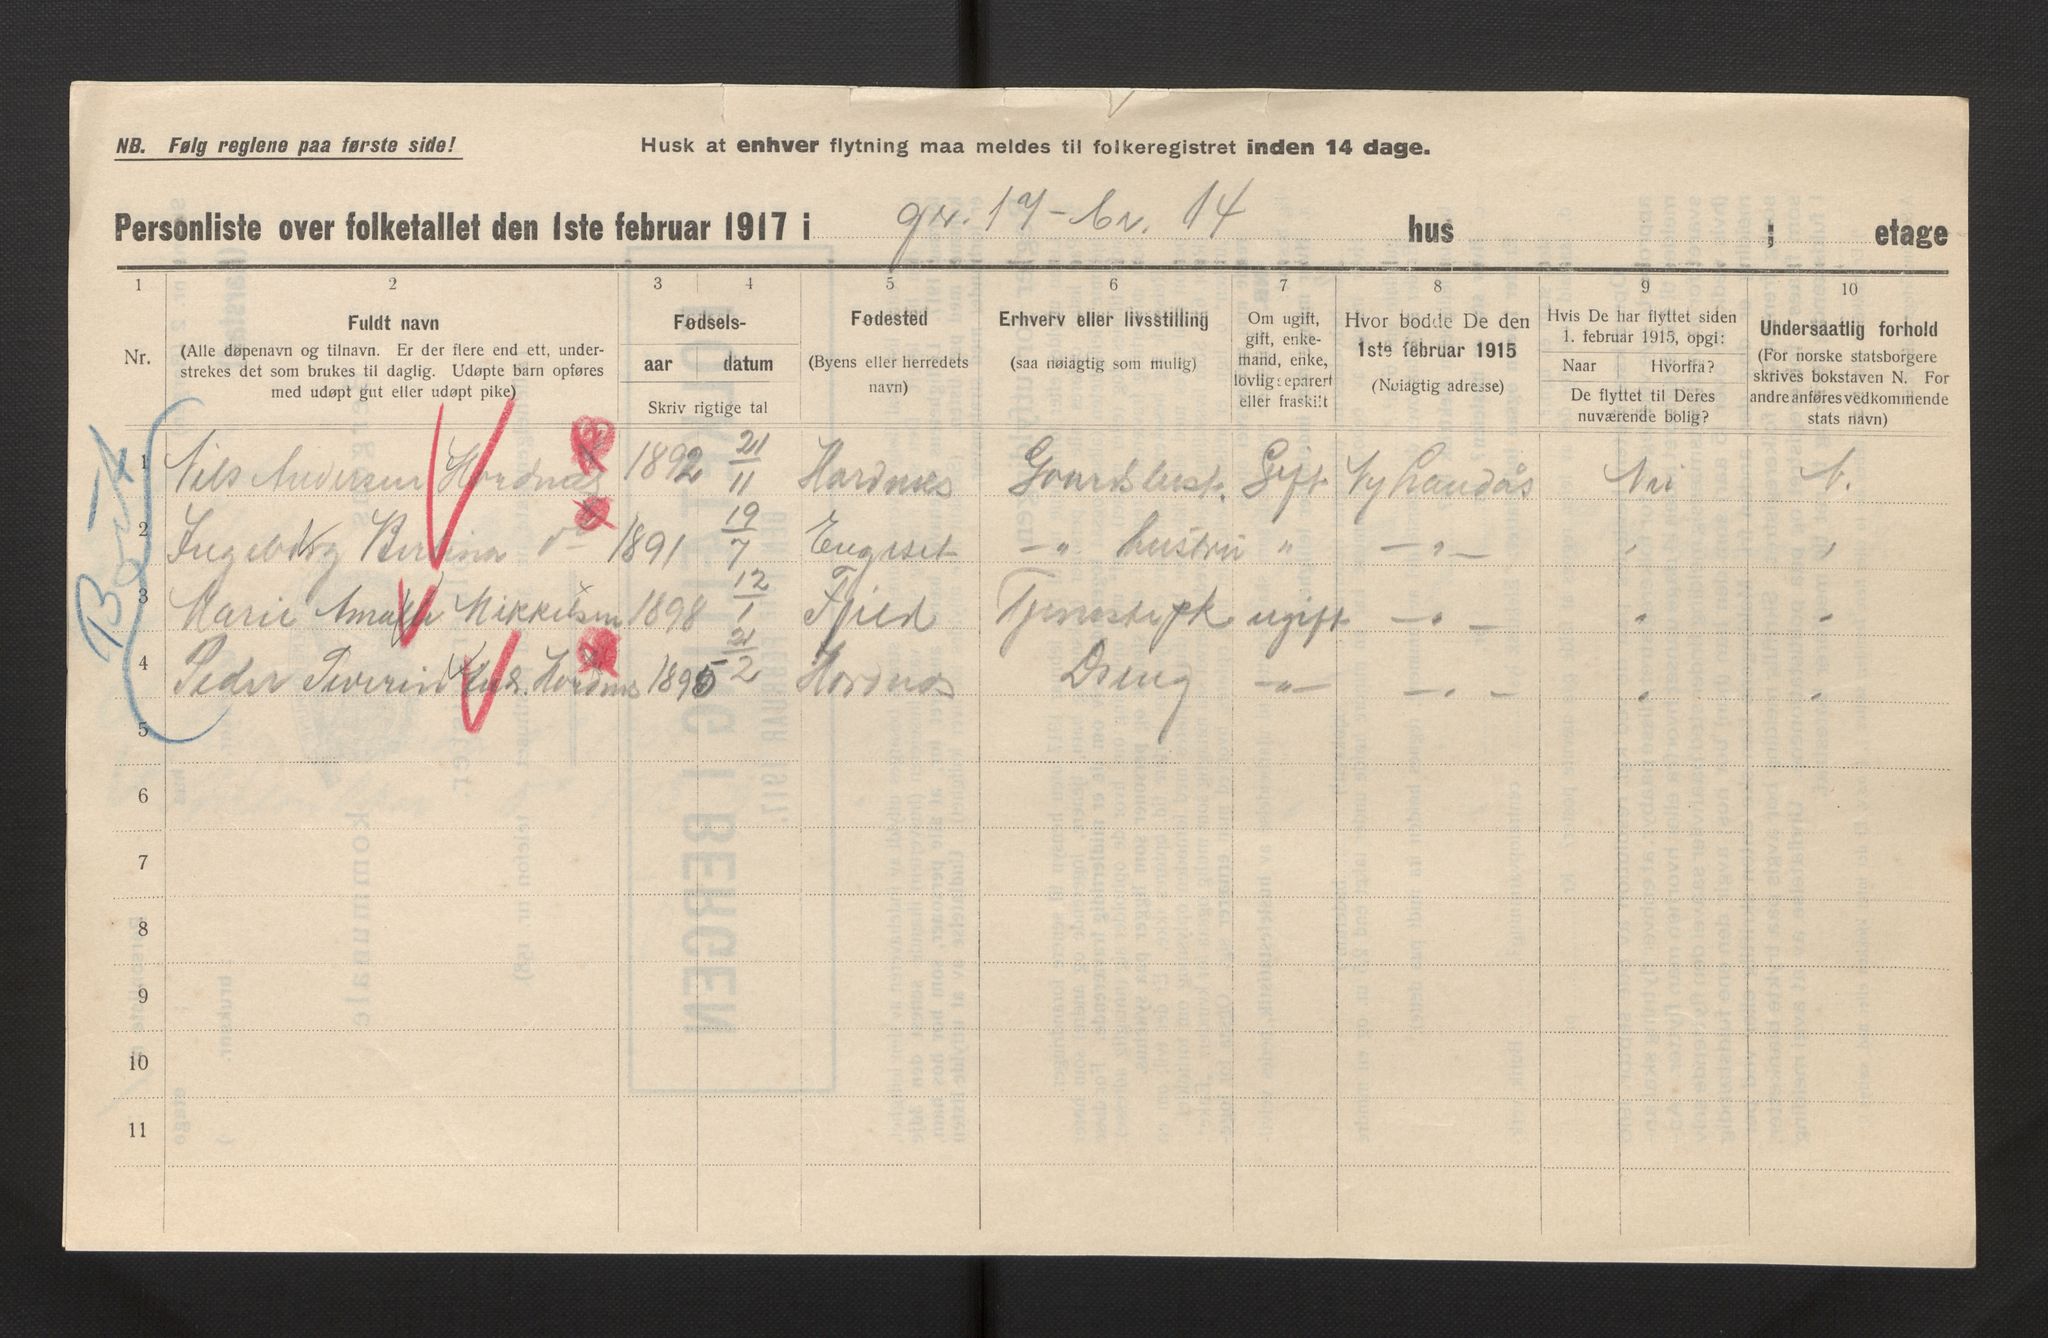 NB. Følg reglene paa første side!
Husk at enhver flytning maa meldes til folkeregistret inden 14 dage.
Personliste over folketallet den 1ste februar 1917 i gr. 17 - br. 14 hus ; etage
1 2 3 4 5 6 7 8 9 10
Nr.
Fuldt navn
(Alle døpenavn og tilnavn. Er der flere end ett, under-
strekes det som brukes til daglig. Udøpte barn opføres
med udøpt gut eller udøpt pike)
Fødsels-
aar datum
Skriv rigtige tal
Fødested
(Byens eller herredets
navn)
Erhverv eller livsstilling
(saa nøiagtig som mulig)
Om ugift,
gift, enke-
mand, enke,
lovlig separert
eller fraskilt
Hvor bodde De den
1ste februar 1915
(Nøiagtig adresse)
Hvis De har flyttet siden
1. februar 1915, opgi:
Naar Hvorfra?
De flyttet til Deres
nuværende bolig?
Undersaatlig forhold
(For norske statsborgere
skrives bokstaven N. For
andre anføres vedkommende
stats navn)
1 Nils Andersen Hordnes 1892 21/11 Hordnes Gaardbest. Gift Ny Landås Nei N.
2 Ingeborg Bertina d— 1891 19/7 Engeset —„ hustru „ —„— „ „
3 Marie Amalie Mikkelsen 1898 12/1 Fjeld Tjenestepk ugift —„— „ „
4 Peder Severin And. Hordnes 1895 21/2 Hordnes Dreng —„— —„— „ „
5
6
7
8
9
10
11